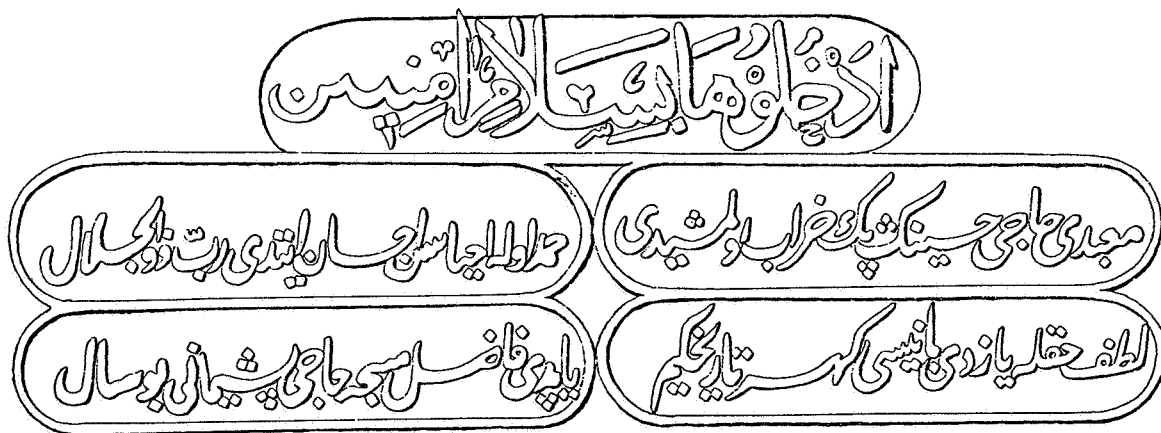 اُدْخُلُوهَا بِسَلَامٍ اٰمِنِينَ
مسجدی حاجی حسینك پك خراب اولمشیدی
حمد اولا احیاسن احسان ایتدی ربّ ذو الجلال
لطف حقله یازدی بانیسی گهر تاریخكیم
یاپدی فاضل مسجد حاجی پشیمانی بو سال